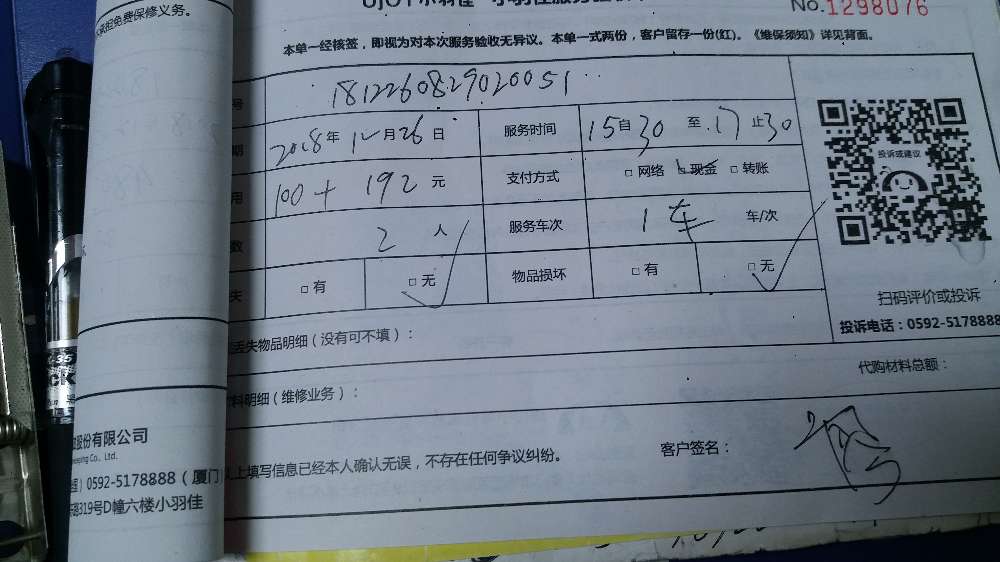 承担免费保修义务。
UJOY小羽佳
No.1298076
本单一经核签，即视为对本次服务验收无异议。本单一式两份，客户留存一份(红)。《维保须知》详见背面。
号 1812260829020051
期 2018年12月26日 服务时间 15自30至17止30
用 100+192元 支付方式 □网络 □现金 □转账
数 2人 服务车次 1车 车/次
失 □有 □无 物品损坏 □有 □无
投诉或建议
扫码评价或投诉
投诉电话：0592-5178888
丢失物品明细（没有可不填）：
料明细（维修业务）： 代购材料总额：
股份有限公司
Co., Ltd.
0592-5178888（厦门
路319号D幢六楼小羽佳
上填写信息已经本人确认无误，不存在任何争议纠纷。 客户签名：